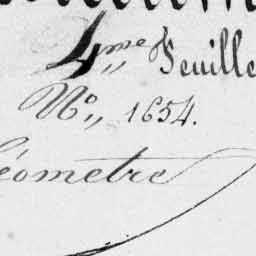 4me Feuille
No,, 1654.
Géomètre